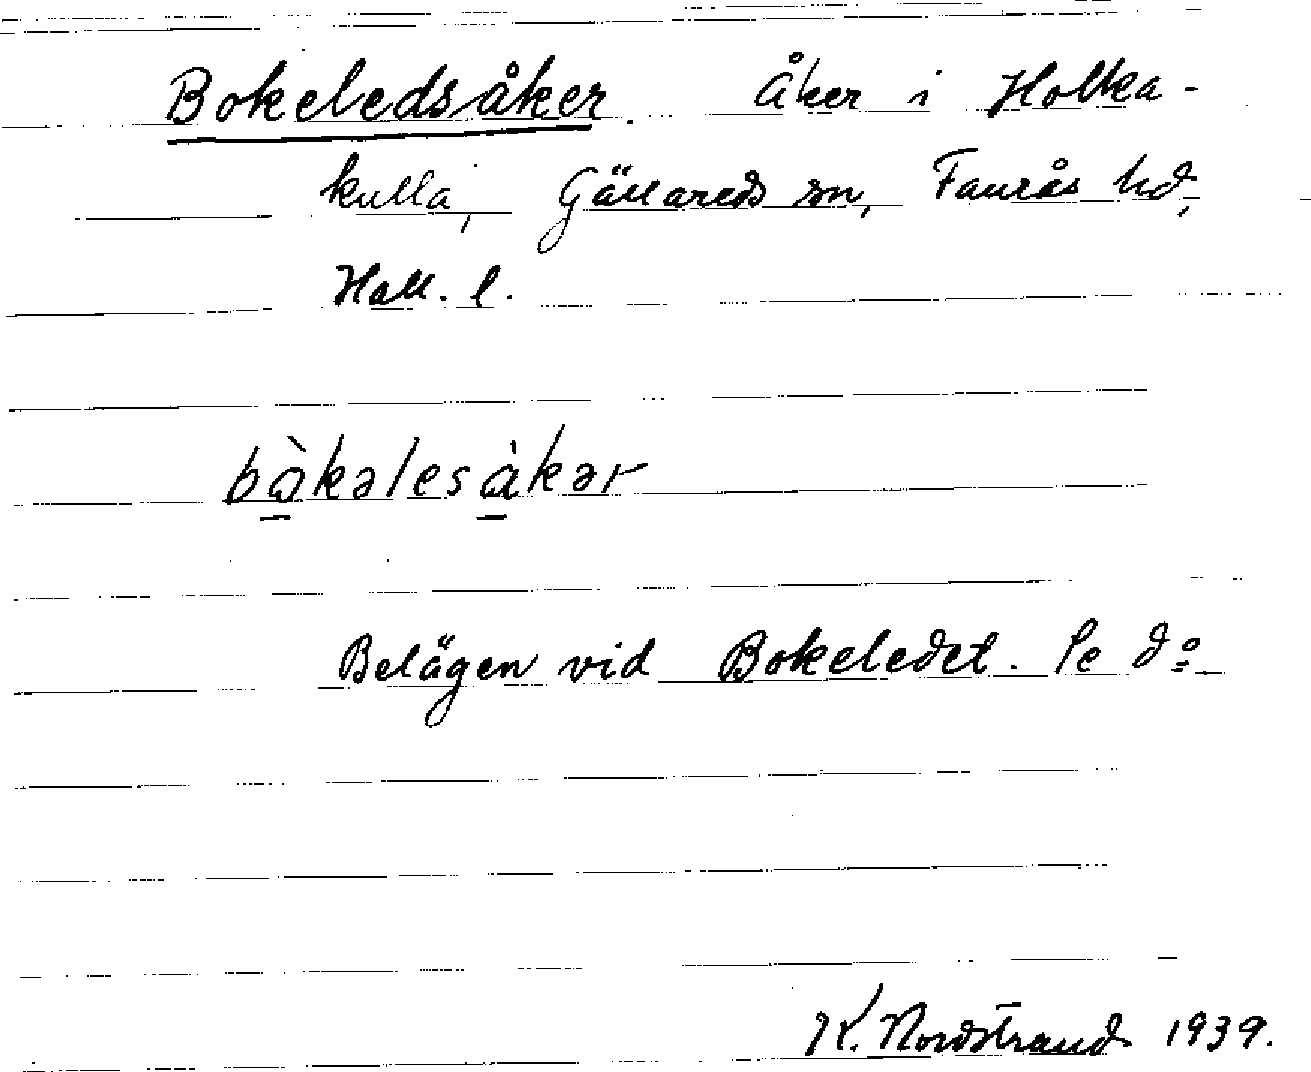 Bokeledsåker. Åker i Holka-
kulla, Gällareds sn, Faurås hd,
Hall. l.
bàkəlesàkər
Belägen vid Bokeledet. Se do
K. Nordstrand 1939.